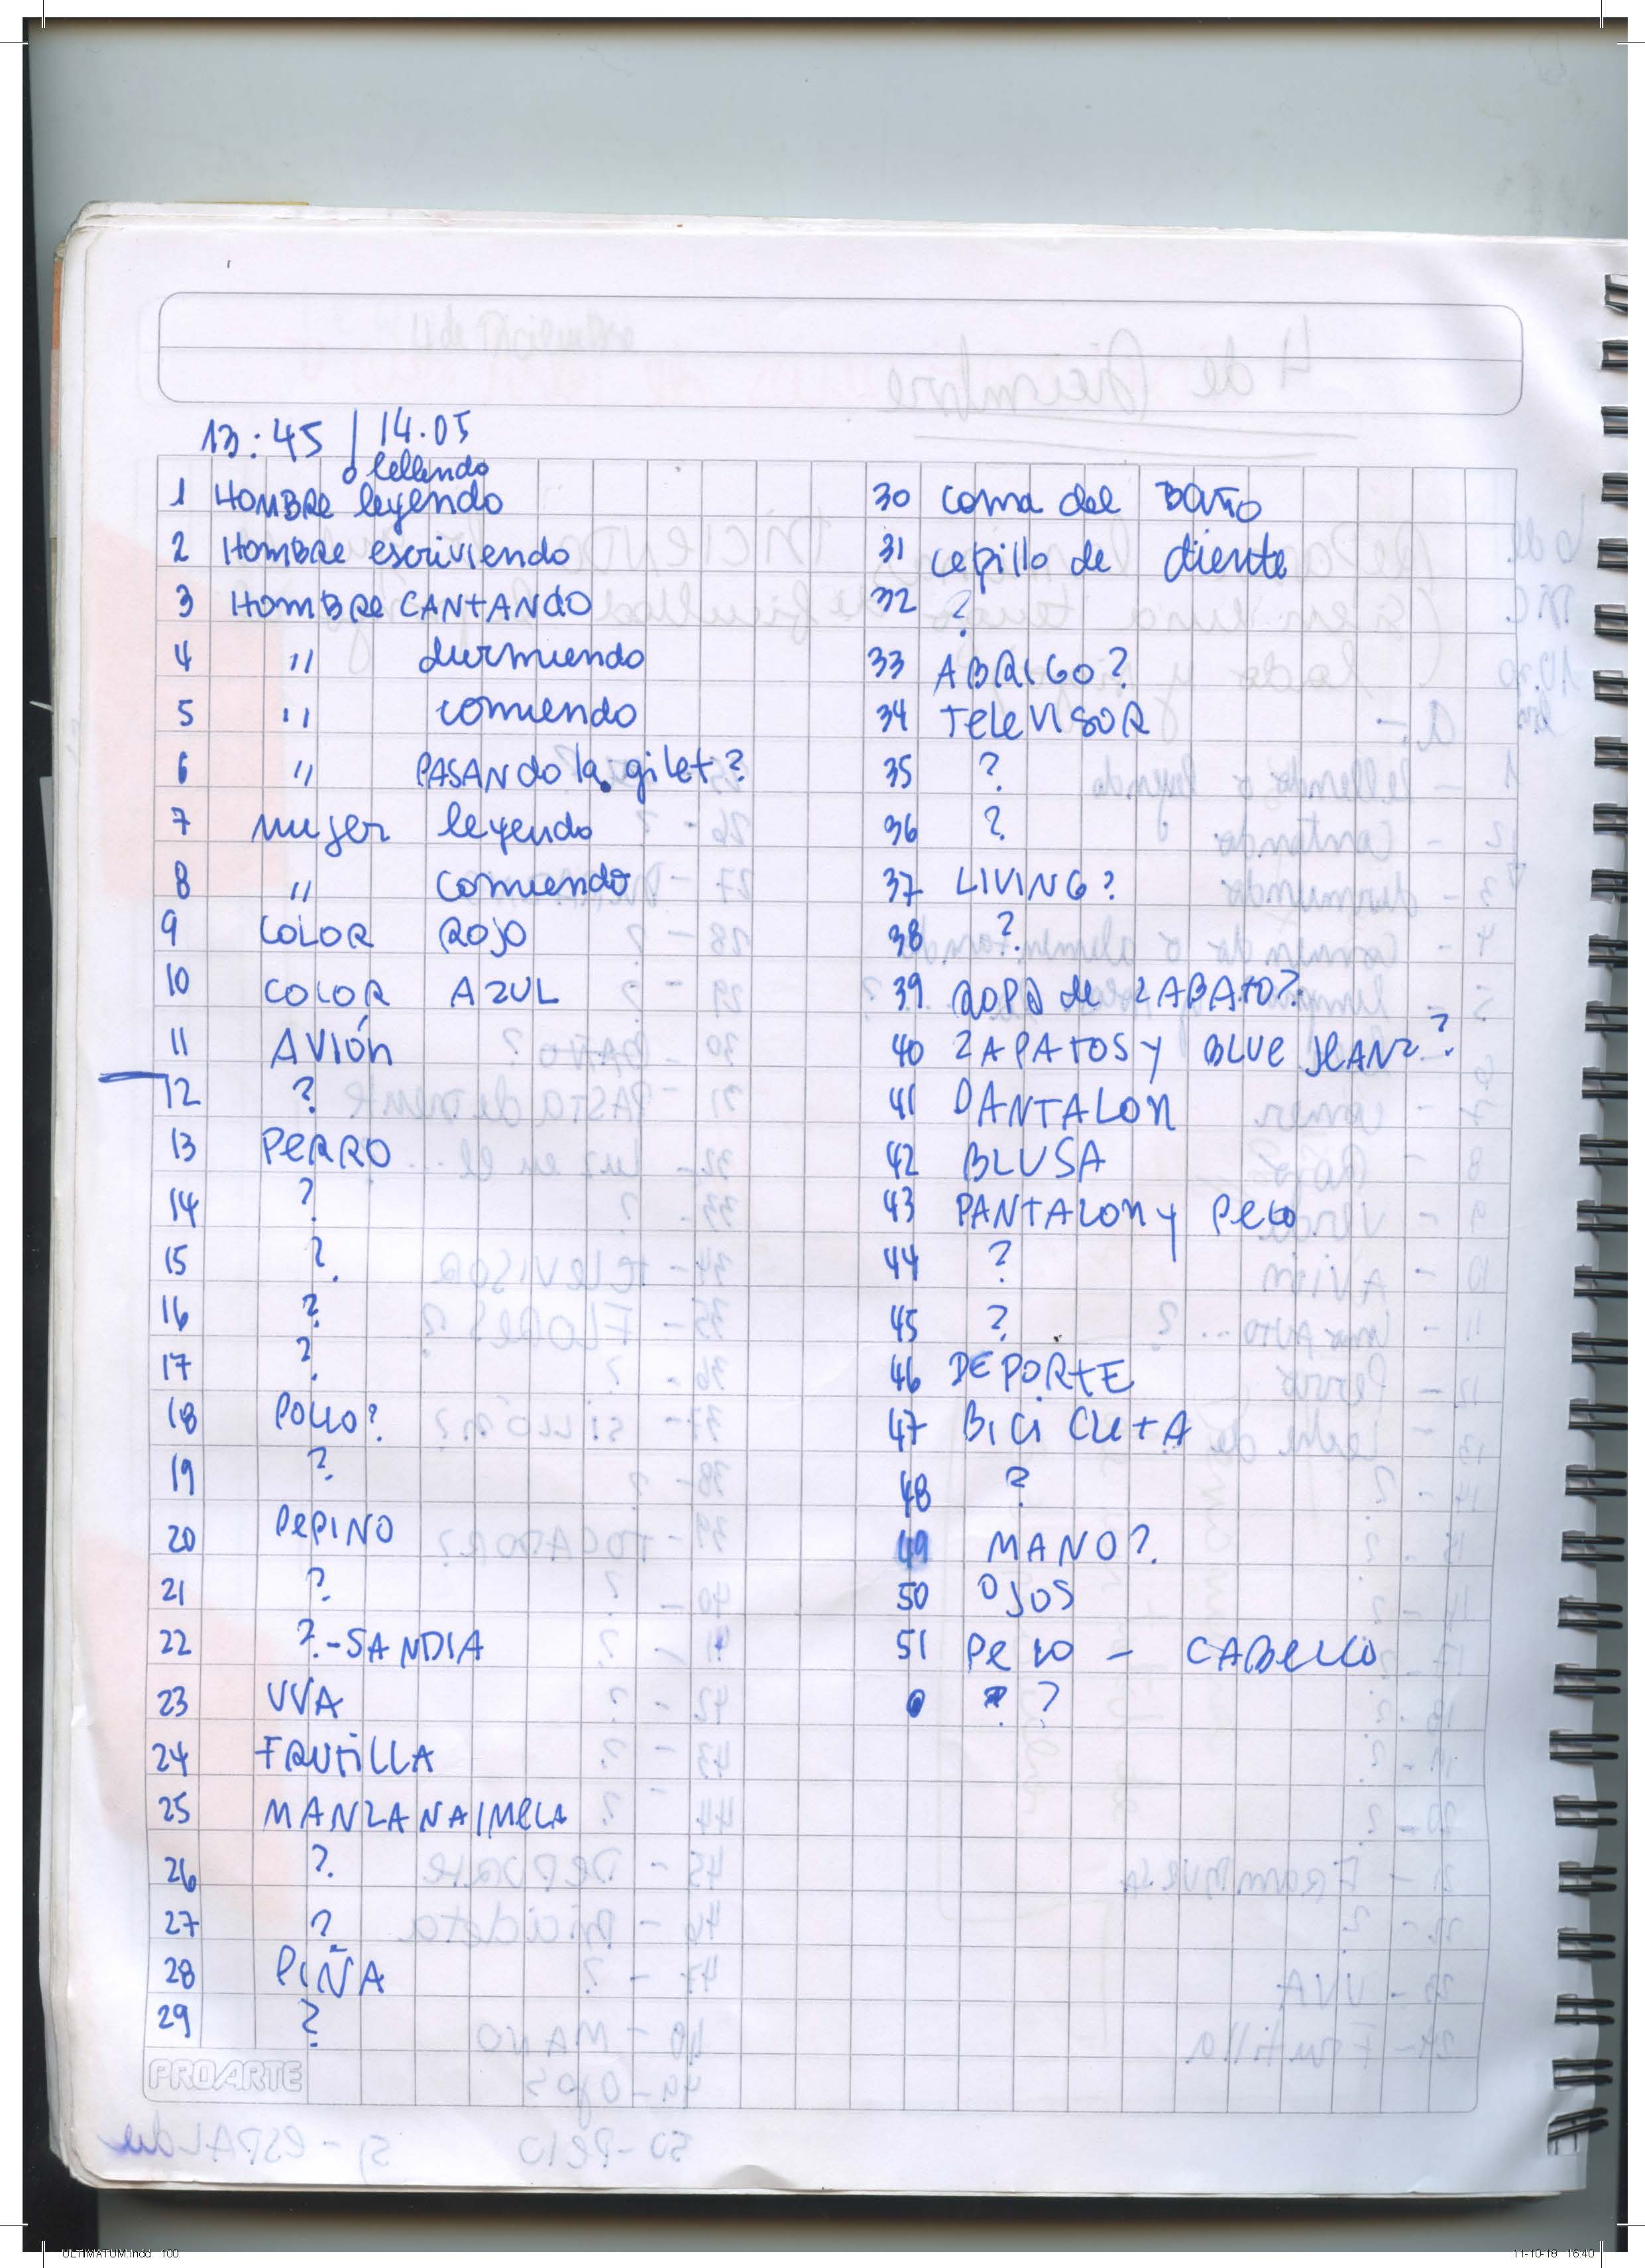 13:45 | 14.05
o lellendo
1 HOMBRe leyendo
2 HOMBRe escriviendo
3 HOMBRe CANTANdO
4 " durmiendo
5 " comiendo
6 " PASANdo la gilet?
7 mujer leyendo
8 " comiendo
9 COLOR ROJO
10 COLOR AZUL
11 AVIÓn
12 ?
13 PeRRO
14 ?
15 ?
16 ?
17 ?
18 POLLO?
19 ?
20 PePINO
21 ?
22 ?-SANDIA
23 UVA
24 FRUTiLLA
25 MANZANA/MelA
26 ?
27 ?
28 PIÑA
29 ?
30 coma del BAÑO
31 cepillo de diente
32 ?
33 ABRIGO?
34 TeleVISOR
35 ?
36 ?
37 LIVING?
38 ?
39 ROPA de ZAPATO?
40 ZAPATOS y BLUe JeANZ?
41 PANTALOn
42 BLUSA
43 PANTALOn y Pelo
44 ?
45 ?
46 DEPORTE
47 BiCiCleTA
48 ?
49 MANO?
50 OJOS
51 Pelo - CABello
?
PROARTE
ULTIMATUM.indd 100
11-10-18 16:40